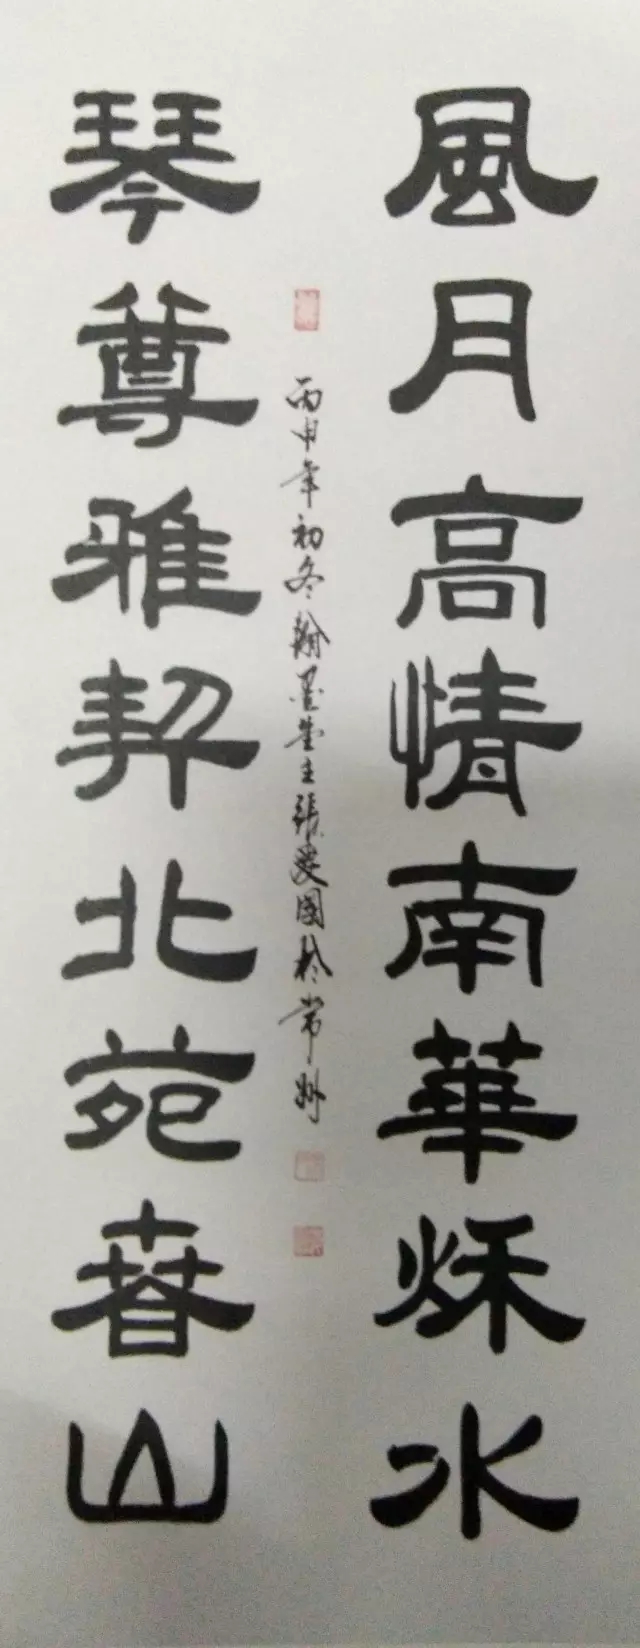 風月高情南華秌水
琴尊雅契北苑春山
丙申年初冬翰墨堂主張國於常州